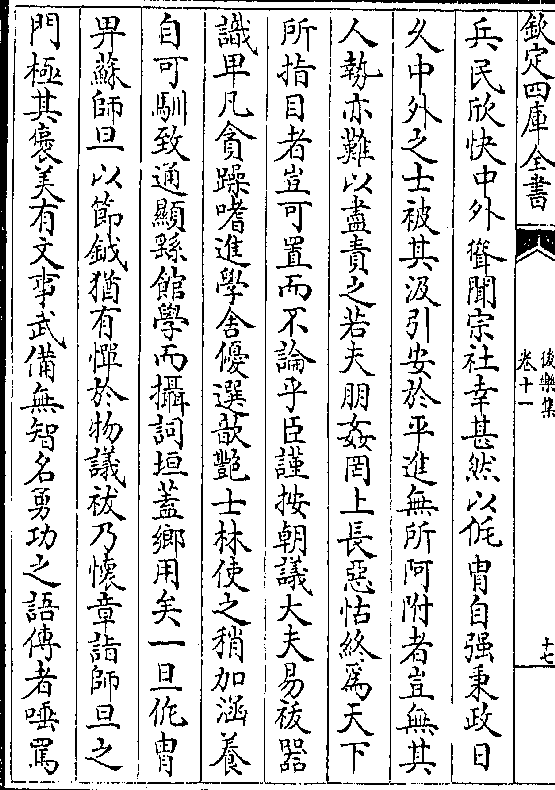 欽定四庫全書
後樂集
卷十一
十七
兵民欣快中外聳聞宗社幸甚然以侂胄自强秉政日
久中外之士被其汲引安於平進無所阿附者豈無其
人執亦難以盡責之若夫朋姦罔上長惡怙終為天下
所指目者豈可置而不論乎臣謹按朝議大夫易祓器
識卑凡貪躁嗜進學舍優選歆艷士林使之稍加涵養
自可馴致通顯繇館學而攝詞垣蓋鄉用矣一旦侂胄
畀蘇師旦以節鉞猶有憚於物議祓乃懷章詣師旦之
門極其褒美有文事武備無智名勇功之語傳者唾罵